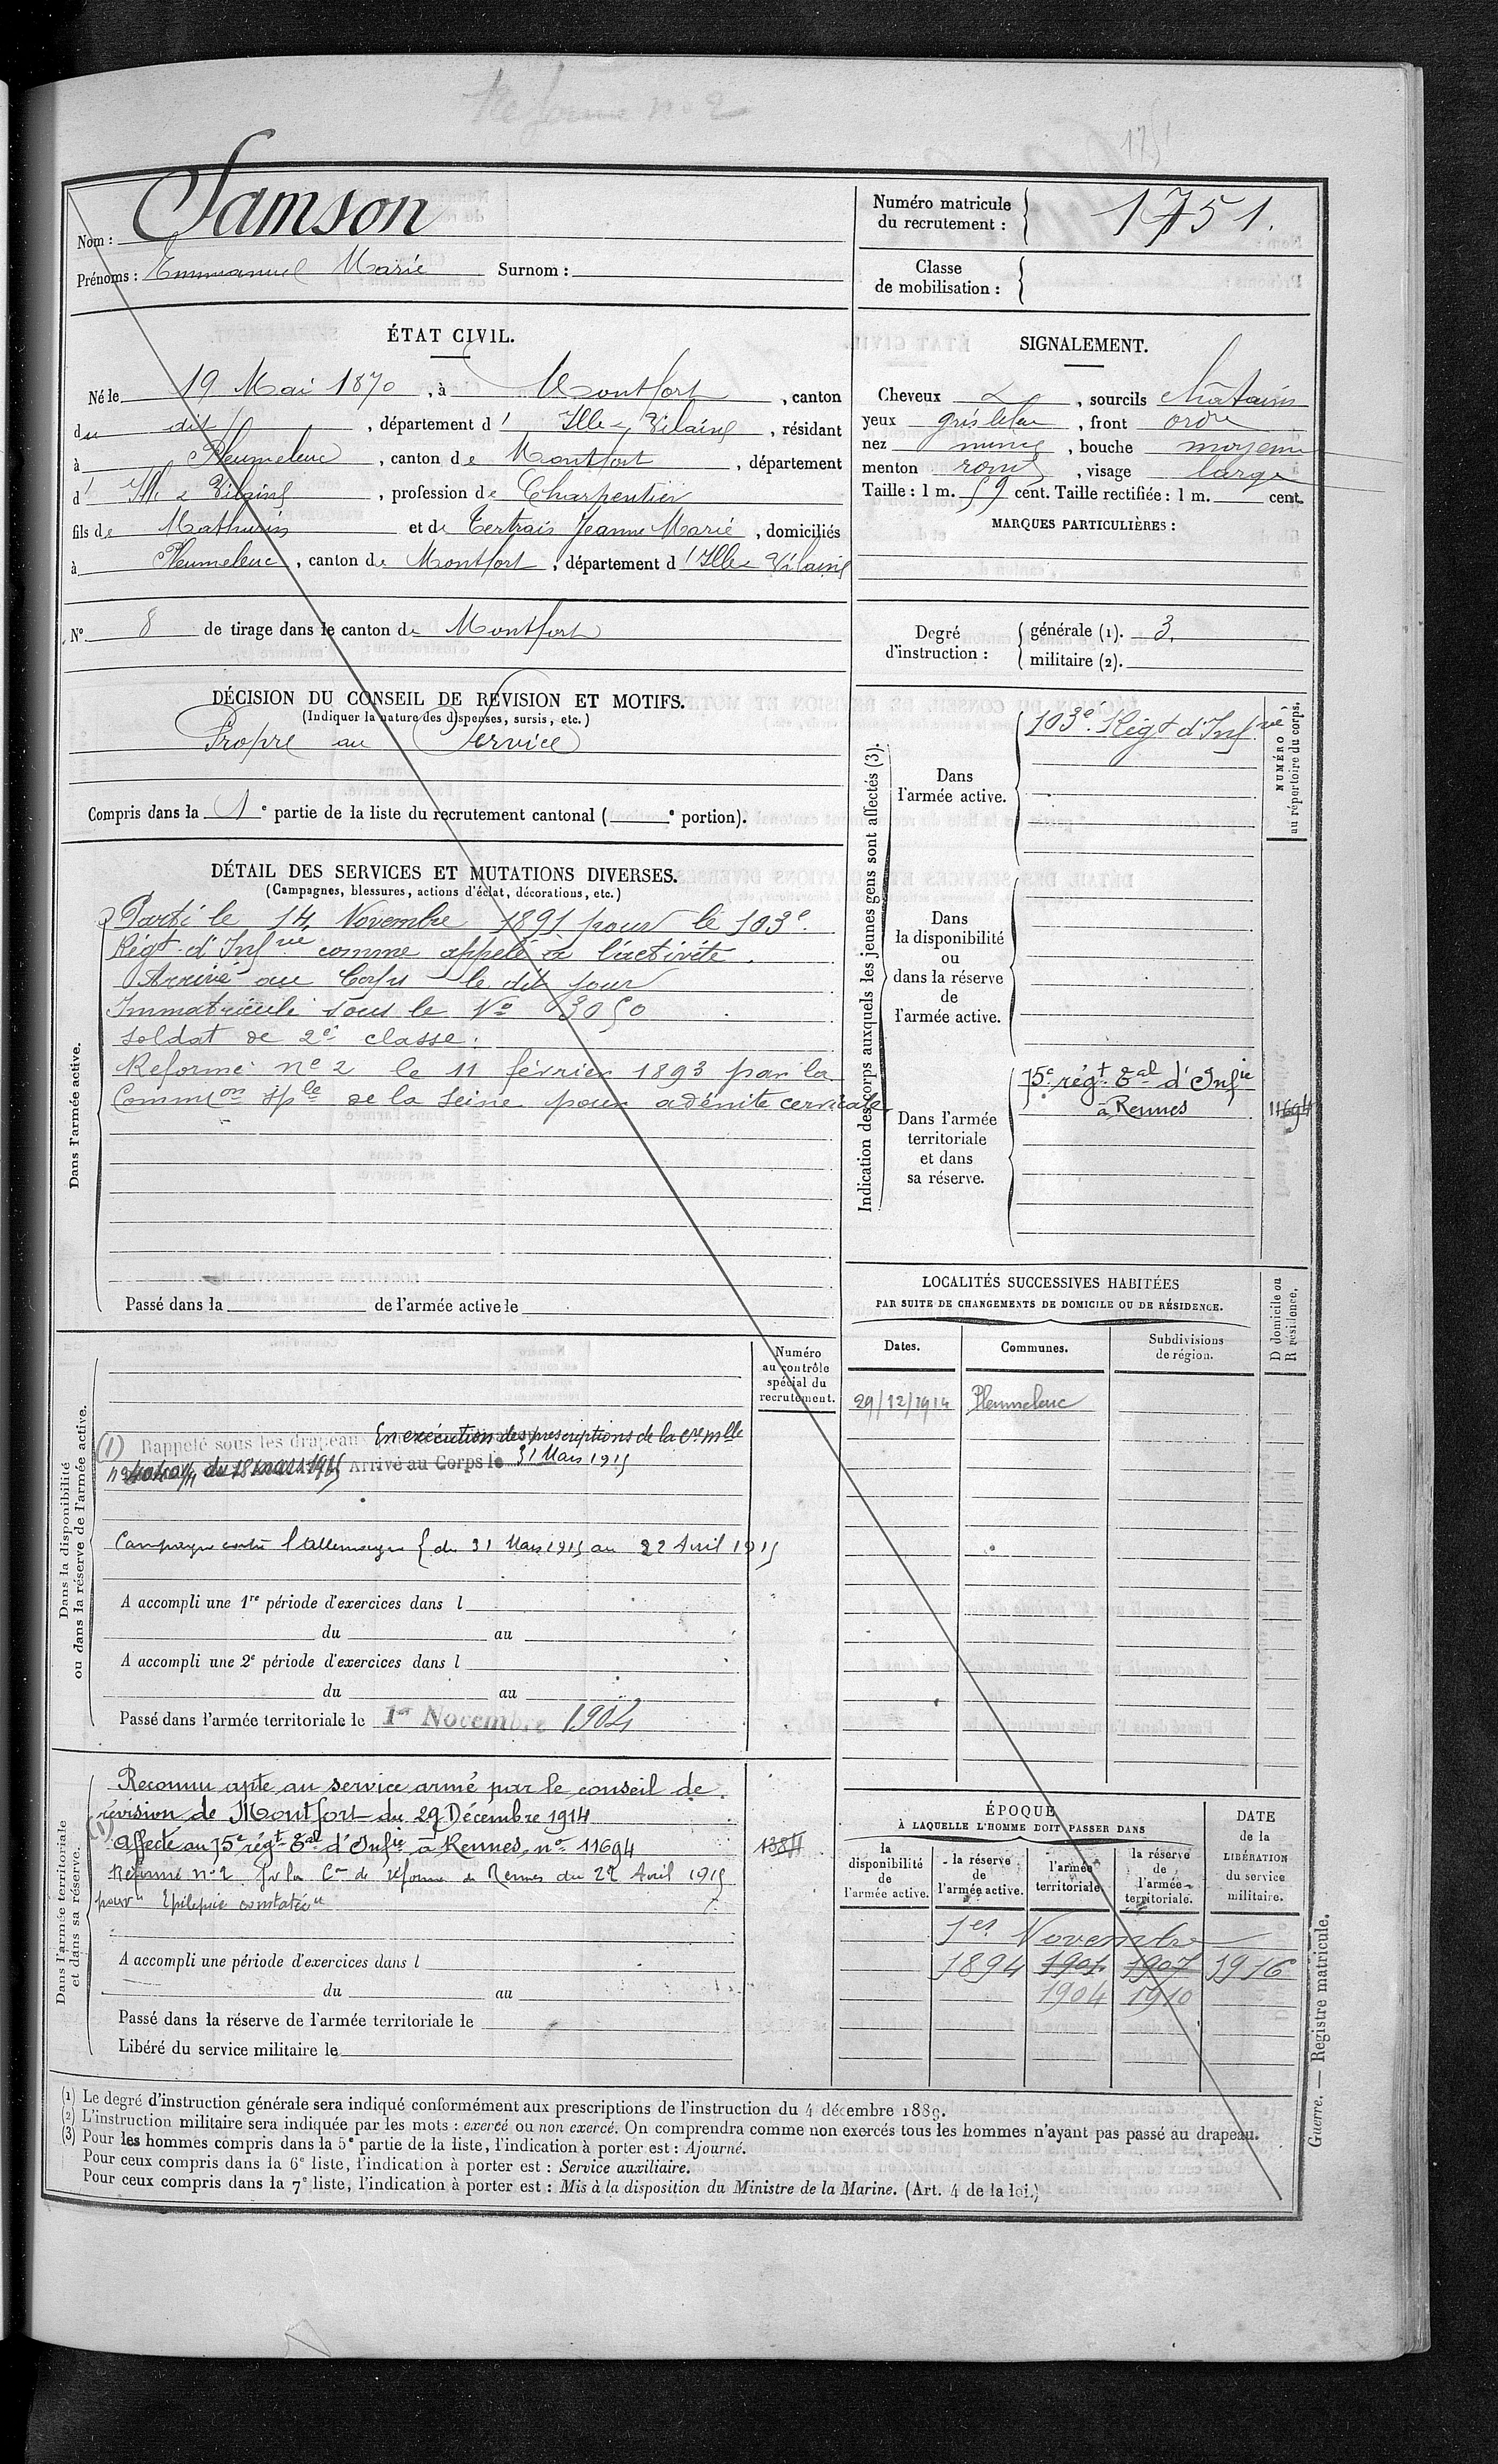 Réforme n° 2
1751
Samson
Nom :
Prénoms : Emmanuel Marie Surnom :
Numéro matricule
du recrutement : 1751.
Classe
de mobilisation :
ÉTAT CIVIL.
Né le 19 Mai 1870, à Montfort, canton
du dit, département d'Ille & Vilaine, résidant
à Pleumeleuc, canton de Montfort, département
d'Ille & Vilaine, profession de Charpentier
fils de Mathurin et de Tertrais Jeanne Marie, domiciliés
à Pleumeleuc, canton de Montfort, département d'Ille & Vilaine
N° 8 de tirage dans le canton de Montfort
SIGNALEMENT.
Cheveux , sourcils châtains
yeux gris bleu, front ordre
nez , bouche moyenne
menton rond, visage large
Taille : 1 m. 59 cent. Taille rectifiée : 1 m. cent.
MARQUES PARTICULIÈRES :
Degré
d'instruction :
générale (1). 3.
militaire (2).
DÉCISION DU CONSEIL DE REVISION ET MOTIFS.
(Indiquer la nature des dispenses, sursis, etc.)
Propre au Service
Compris dans la 1e partie de la liste du recrutement cantonal ( e portion).
DÉTAIL DES SERVICES ET MUTATIONS DIVERSES.
(Campagnes, blessures, actions d'éclat, décorations, etc.)
Dans l'armée active.
Parti le 14 Novembre 1891 pour le 103e.
Régt d'Infrie comme appelé à l'activité.
Arrivé au Corps le dit jour
Immatriculé sous le No 3050
soldat de 2e classe.
Réformé no 2 le 11 février 1893 par la
Commion sple de la Seine pour adénite cervicale
Passé dans la de l'armée active le
Indication des corps auxquels les jeunes gens sont affectés (3).
NUMÉRO
au répertoire du corps.
Dans
l'armée active.
103e. Régt d'Infrie
Dans
la disponibilité
ou
dans la réserve
de
l'armée active.
Dans l'armée
territoriale
et dans
sa réserve.
75e régt Tal d'Infie
à Rennes
11694
LOCALITÉS SUCCESSIVES HABITÉES
PAR SUITE DE CHANGEMENTS DE DOMICILE OU DE RÉSIDENCE.
D domicile ou
R résidence.
Dates.
Communes.
Subdivisions
de région.
29/12/1914 Pleumeleuc
Dans la disponibilité
ou dans la réserve de l'armée active.
Numéro
au contrôle
spécial du
recrutement.
(1) Rappelé sous les drapeaux En exécution des prescriptions de la cremlle
du 18 mars 1915 Arrivé au Corps le 31 Mars 1915
Campagne contre l'Allemagne { du 31 Mars 1915 au 22 Avril 1915
A accompli une 1re période d'exercices dans l
du au
A accompli une 2e période d'exercices dans l
du au
Passé dans l'armée territoriale le 1er Novembre 1904
Dans l'armée territoriale
et dans sa réserve.
Reconnu apte au service armé par le conseil de
révision de Montfort du 29 Décembre 1914
(1)
Affecté au 75e régt Tal d'Infie à Rennes, no 11694
1384
Réformé no 2 par la Con de réforme de Rennes du 22 Avril 1915
pour "Epilepsie constatée"
A accompli une période d'exercices dans l
du au
Passé dans la réserve de l'armée territoriale le
Libéré du service militaire le
ÉPOQUE
À LAQUELLE L'HOMME DOIT PASSER DANS
la
disponibilité
de
l'armée active.
la réserve
de
l'armée active.
l'armée
territoriale.
la réserve
de
l'armée
territoriale.
DATE
de la
LIBÉRATION
du service
militaire.
1er Novembre
1894 1901 1907 1916
1904 1910
(1) Le degré d'instruction générale sera indiqué conformément aux prescriptions de l'instruction du 4 décembre 1889.
(2) L'instruction militaire sera indiquée par les mots : exercé ou non exercé. On comprendra comme non exercés tous les hommes n'ayant pas passé au drapeau.
(3) Pour les hommes compris dans la 5e partie de la liste, l'indication à porter est : Ajourné.
Pour ceux compris dans la 6e liste, l'indication à porter est : Service auxiliaire.
Pour ceux compris dans la 7e liste, l'indication à porter est : Mis à la disposition du Ministre de la Marine. (Art. 4 de la loi.)
Guerre. — Registre matricule.